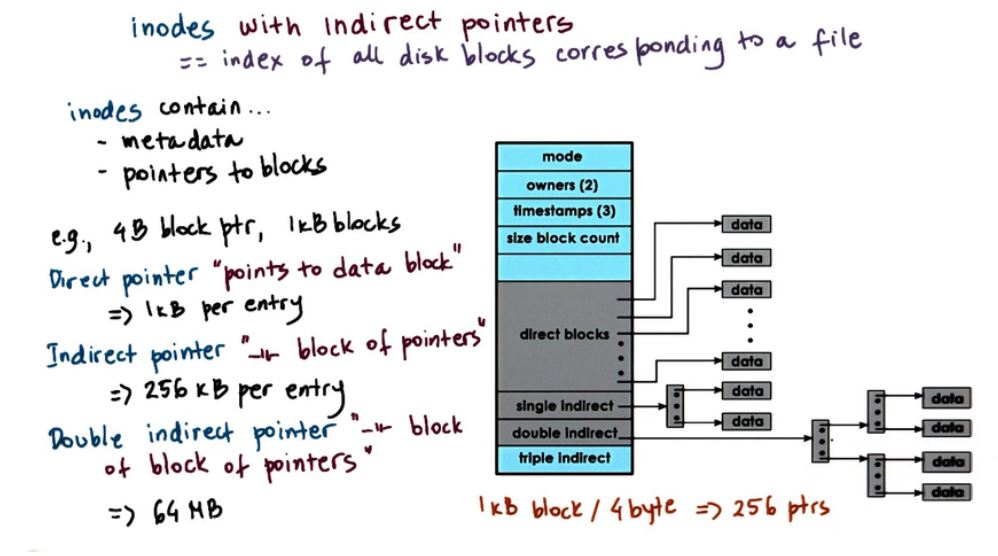 inodes with indirect pointers
== index of all disk blocks corresponding to a file
inodes contain...
- metadata
- pointers to blocks
e.g., 4B block ptr, 1kB blocks
Direct pointer "points to data block"
=> 1kB per entry
Indirect pointer "-"- block of pointers"
=> 256 kB per entry
Double indirect pointer "-"- block
of block of pointers"
=> 64 MB
mode
owners (2)
timestamps (3)
size block count
direct blocks
single indirect
double indirect
triple indirect
data
data
data
data
data
data
data
data
data
data
1kB block / 4 byte => 256 ptrs